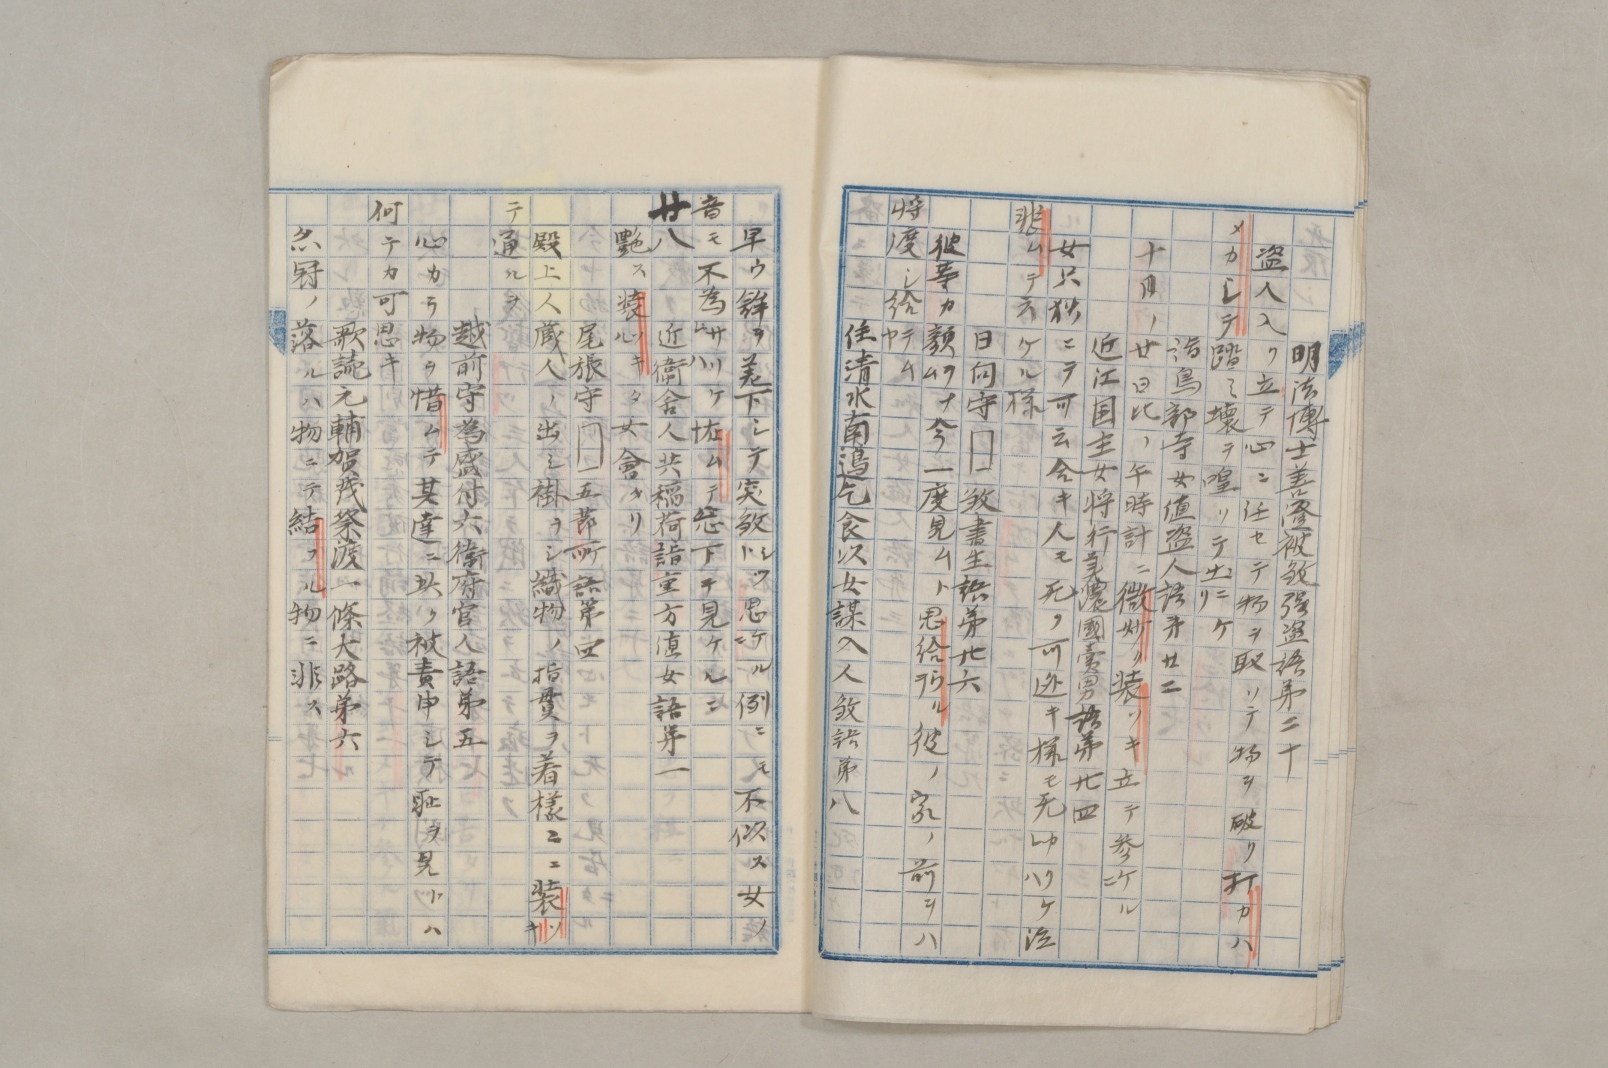 明法博士善澄被殺强盗語第二十
盗人入リ立テ心ニ任セテ物ヲ取リテ物ヲ破リ打カハ
メカシテ踏ミ壊テ喤リテ出ニケリ
詣鳥部寺女値盗人語第廿二
十月ノ廿日比ノ午時計ニ微妙リ装ソキ立テ参ニケル
近江国主女将行美濃國賣男語第廿四
女只独ニテ可云合キ人モ死ク可迯キ様モ死カリケハ泣
悲ムテ云ケル様
日向守□一殺書生語第廿六
彼等カ顔ヲナ今一度見ムト思給ラル彼ノ家ノ前ヲハ
将渡シ給テムヤ
住清水南邉乞食以女謀入人殺語第八
早ウ鉾ヲ差下シテ突殺ト思ケルニ例ニモ不似ス女ノ
音モ不為サリケハ怪ムテ忩下テ見ケルニ
廿八
近衛舎人共稲荷詣重方値女語第一
艶ス装ソキタ女會タリ
尾張守□一五節所語第四
殿上人蔵人ノ出シ褂ヲシ織物ノ指貫ヲ着様ニニ装ソキ
テ通ルヲ
越前守為盛付六衛府官人語第五
心カラ物ヲ惜ムテ其達ニ此ク被責申シテ耻ヲ見レハ
何テカ可思キ
歌読元輔賀茂祭渡一條大路第六
亦冠ノ落ルハ物ニテ結フル物ニ非ス